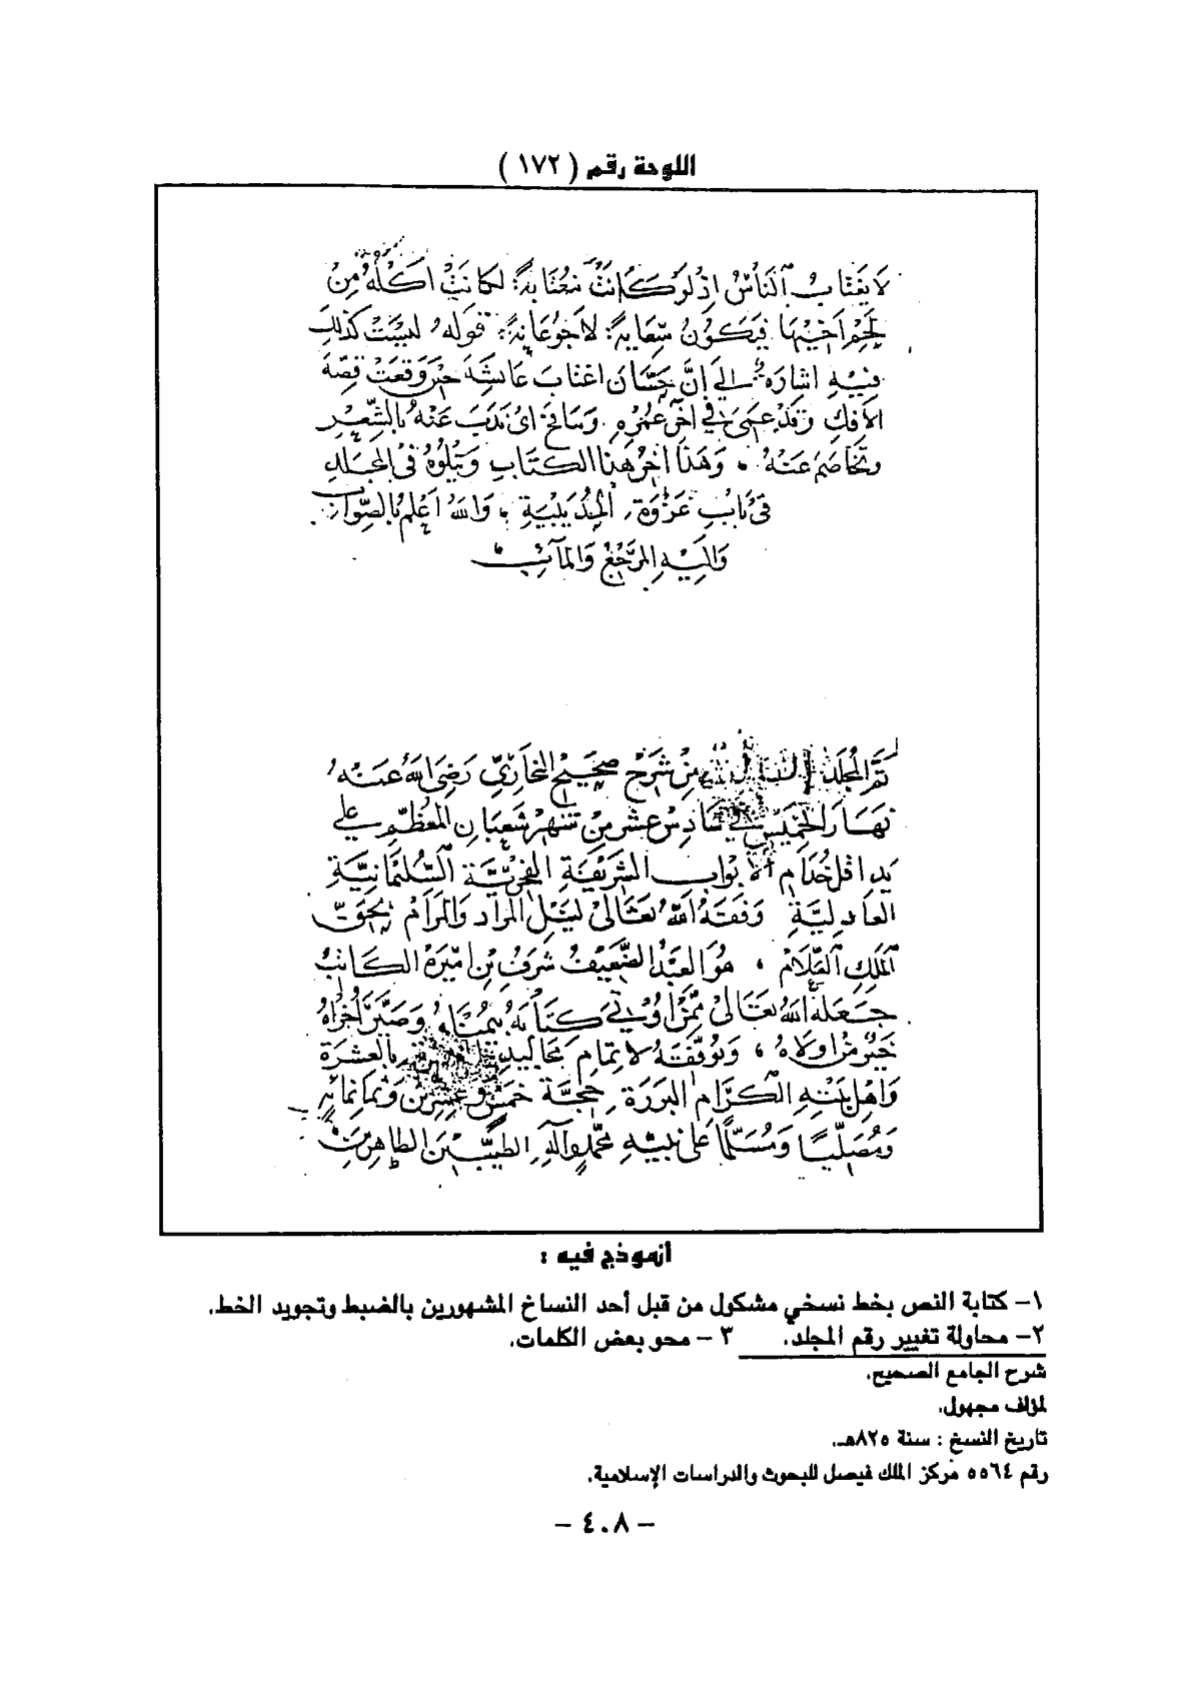 اللوحة رقم ( ١٧٢ )
لا يغتاب الناس اذ لو كانت مغتابة لكانت اكلة من
لحم اخيها فيكون شعابة لا جوعانة قوله لست كذلك
فيه اشارة الى ان حسان اغتاب عايشة حين وقعت قصة
الافك وقد عمي في اخر عمره وينافح اى يذب عنه بالشعر
ويخاصم عنه وهذا اخر هذا الكتاب ويتلوه في المجلد
في باب غزوة الحديبية والله اعلم بالصواب
واليه المرجع والمآب
تم المجلد من شرح صحيح البخاري رضي الله عنه
نهار الخميس في سادس عشر من شهر شعبان المعظم على
يد اقل خدام الابواب الشريفة الفخرية السلمانية
العادلية وفقه الله تعالى لنيل المراد والمرام بحق
الملك العلام هو العبد الضعيف شرف بن اميرة الكاتب
جعله الله تعالى ممن اوتي كتابه بيمناه وصير اخراه
خير من اولاه وتوفقه لاتمام مجاليد بالعشرة
واهل بيته الكرام البررة حجة خمس وعشرين وثمانمائة
ومصليا ومسلما على نبيه محمد وآله الطيبين الطاهرين
أنموذج فيه :
١- كتابة النص بخط نسخي مشكول من قبل أحد النساخ المشهورين بالضبط وتجويد الخط.
٢- محاولة تغيير رقم المجلد. ٣ - محو بعض الكلمات.
شرح الجامع الصحيح.
لمؤلف مجهول.
تاريخ النسخ : سنة ٨٢٥هـ.
رقم ٥٥٦٤ مركز الملك فيصل للبحوث والدراسات الإسلامية.
- ٤٠٨ -